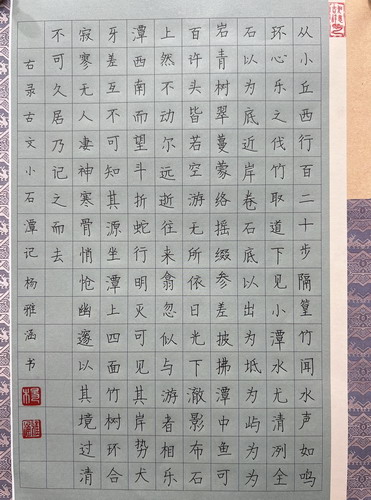 从小丘西行百二十步隔篁竹闻水声如鸣
环心乐之伐竹取道下见小潭水尤清冽全
石以为底近岸卷石底以出为坻为屿为为
岩青树翠蔓蒙络摇缀参差披拂潭中鱼可
百许头皆若空游无所依日光下澈影布石
上然不动尔远逝往来翕忽似与游者相乐
潭西南而望斗折蛇行明灭可见其岸势犬
牙差互不可知其源坐潭上四面竹树环合
寂寥无人凄神寒骨悄怆幽邃以其境过清
不可久居乃记之而去
右录古文小石潭记杨雅涵书